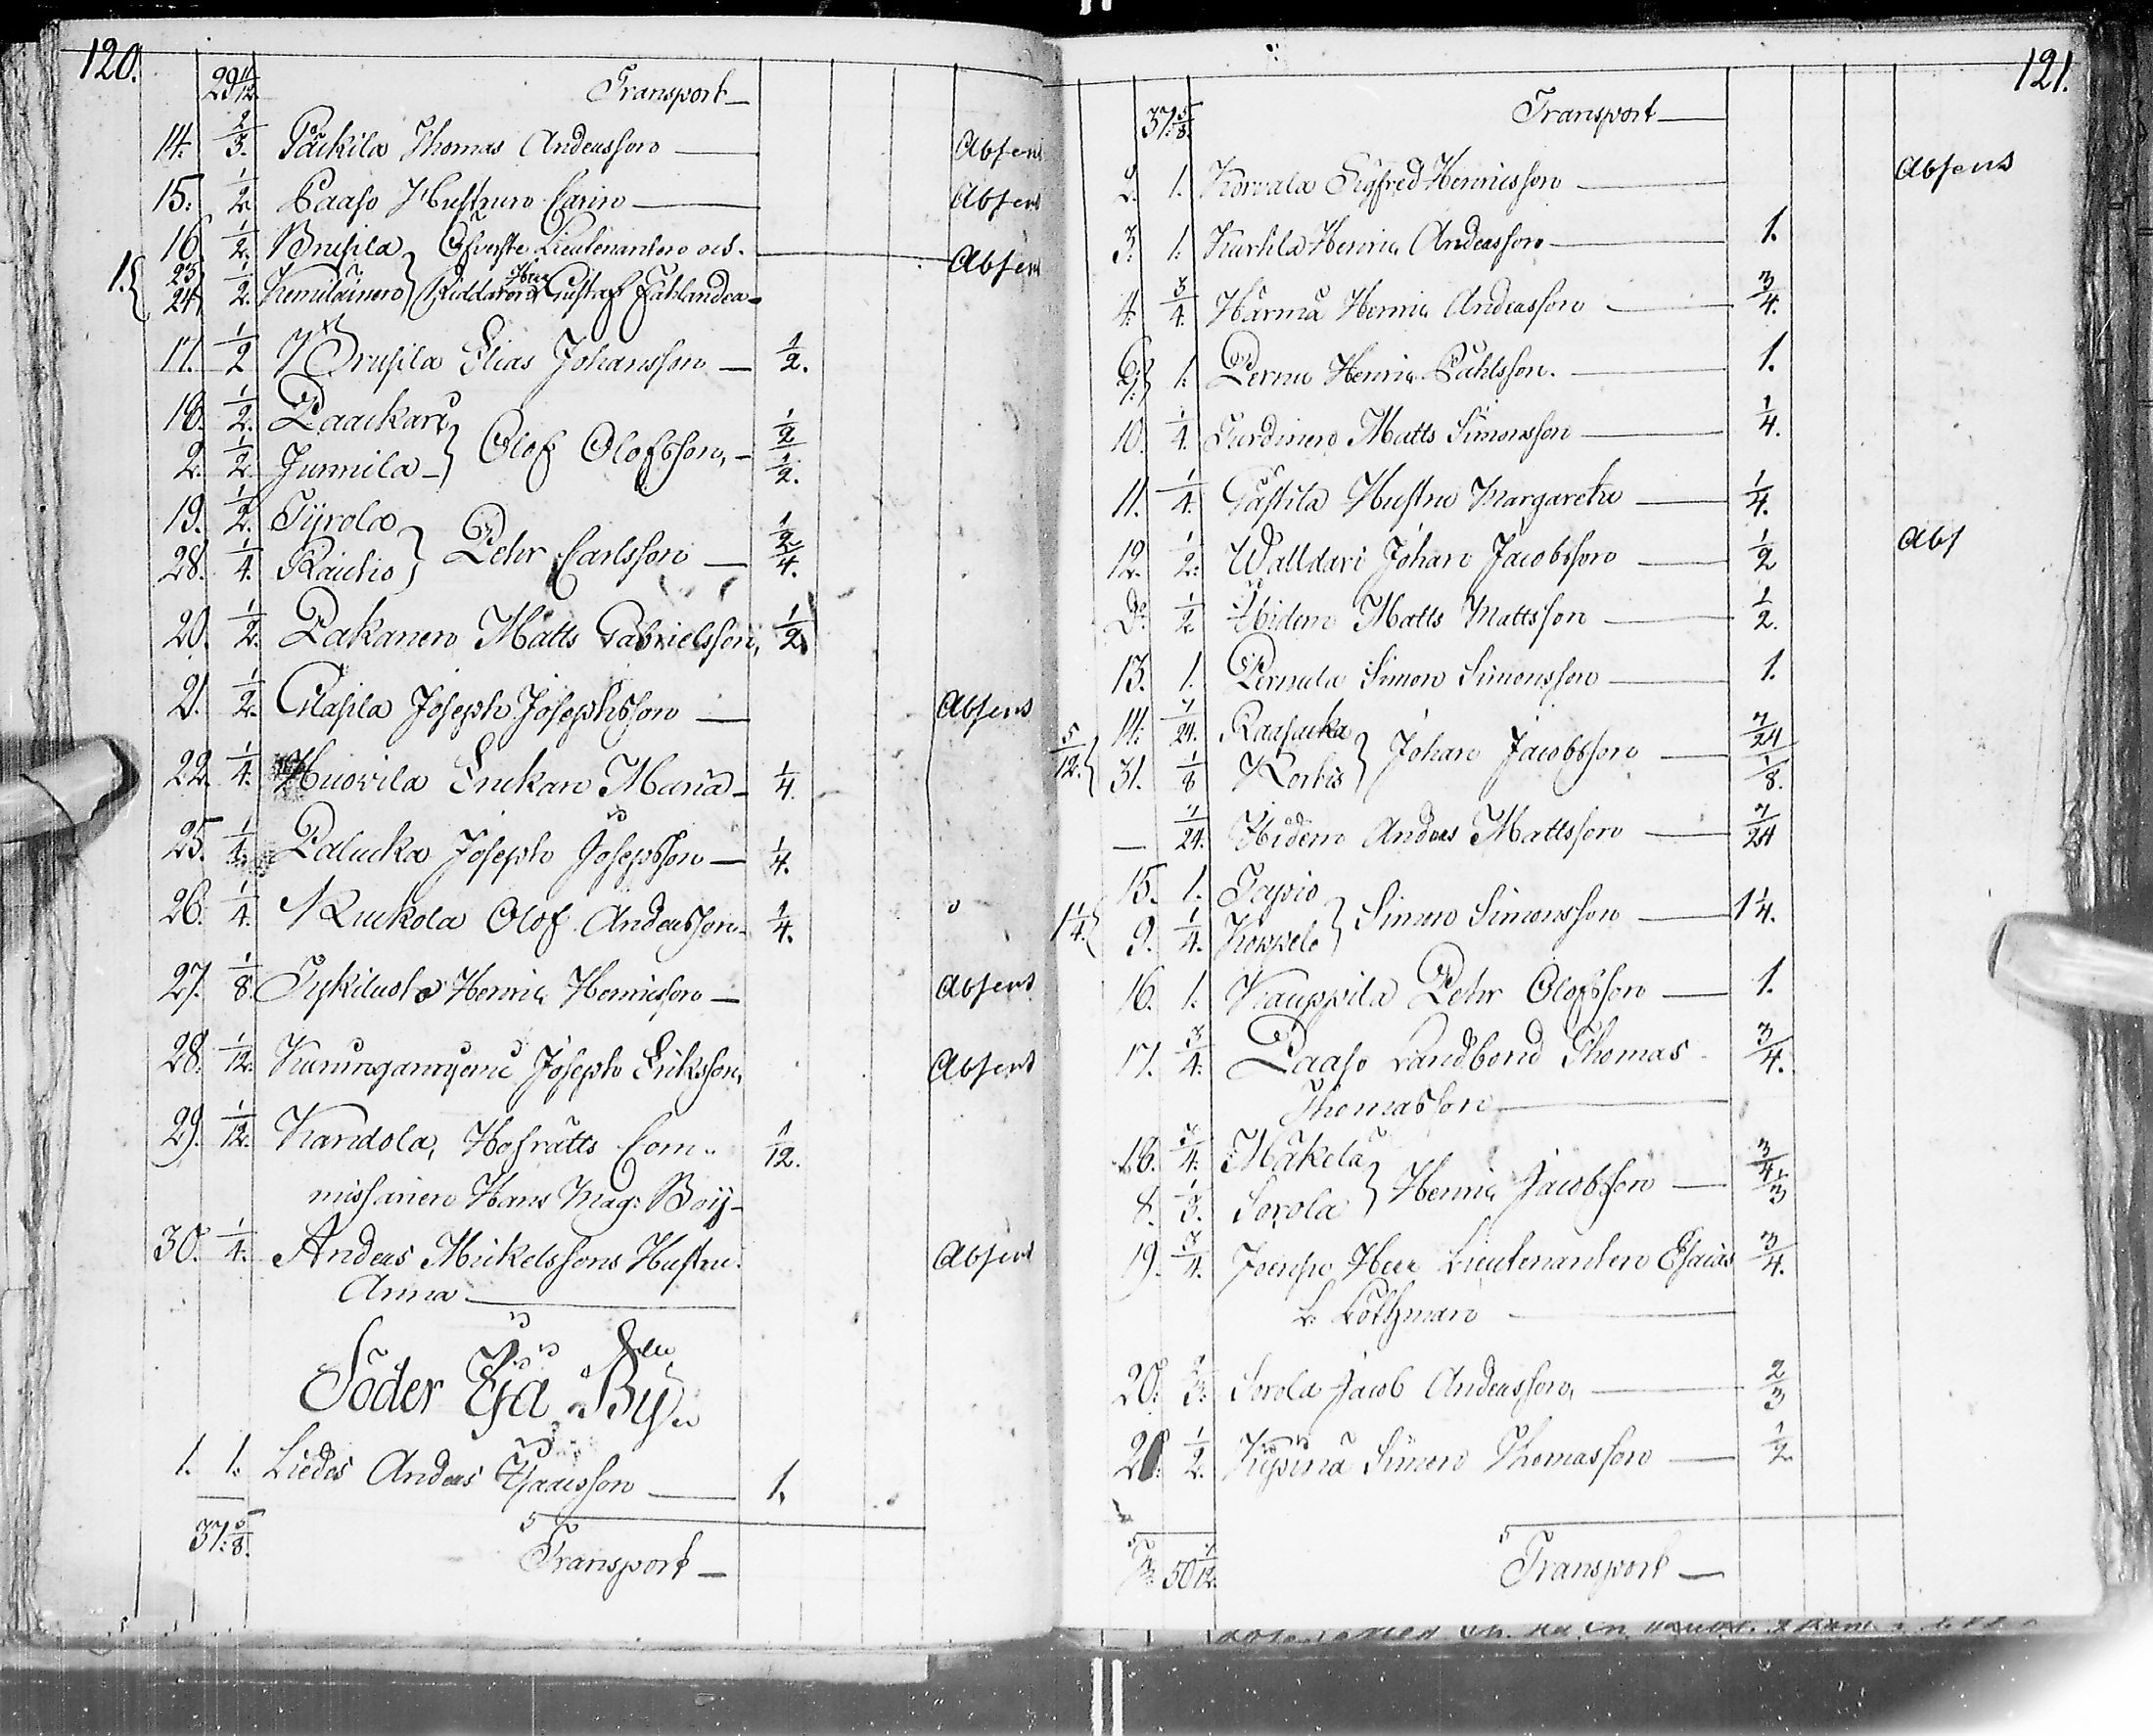 120.
29 11/12. Transport
14. 2/3. Päckilä Thomas Andersson Absens
15. 1/2. Paaso Hustrun Carin Absens
16 1/2. Brusila Öfverste Lieutenanten och Absens
1. 23 24 1/2. Kemiläinen Riddaren Herr Gustaf Fahlander
17. 1/2 Brusila Elias Johansson 1/2.
18. 1/2. Paackari
2. 1/2. Junnila Olof Olofsson 1/2 1/2.
19. 1/2. Tyrola
28. 1/4. Raichio Pehr Carlsson 1/2 1/4.
20. 1/2. Pakanen Matts Gabrielsson 1/2
21. 1/2. Clasila Joseph Josephsson Absens
22. 1/4. Huovila Enckan Maria 1/4
25. 1/4. Palucka Joseph Josephsson 1/4.
26. 1/4. Ruckola Olof Andersson 1/4.
27. 1/8. Henric Henricsson Absens
28. 1/12. Joseph Eriksson Absens
29. 1/12. Kandola, Hofrätts Com- 1/12.
missarien Hans Mag: Boij
30. 1/4. Anders Mickelssons Hustru Absens
Anna
Söder By
1. 1. Liedes Anders Isacsson 1.
37: 5/8. Transport
121.
37: 5/8. Transport
2. 1. Korvala Sigfred Henricsson Absens
3. 1. Kurkila Henric Andersson 1.
4. 3/4. Härmä Henric Andersson 3/4.
1. Pernu Henric Påhlsson. 1.
10. 1/4. Turdinen Matts Simonsson 1/4.
11. 1/4. Hustru Margaretha 1/4.
12. 1/2. Walldari Johan Jacobsson 1/2 Abs
Do 1/2 Ibidem Matts Mattsson 1/2.
13. 1. Pernula Simon Simonsson 1.
5/12. 14. 7/24. Raasacka
31. 1/8 Korkis Johan Jacobsson 7/24 1/8.
— 7/24. Ibidem Anders Mattsson 7/24
15. 1. Tapio
1 1/4. 9. 1/4. Koppelo Simon Simonsson 1 1/4.
16. 1. Kauppila Pehr Olofsson 1.
17. 3/4. Paaso Landbond Thomas 3/4.
Thomasson
18. 3/4. Mäkelä
8. 1/3. Sorola Henric Jacobsson 3/4 1/3
19. 3/4. Joensu Herr Lieutenanten Esaias 3/4.
L. Lothman
20. 2/3. Sorola Jacob Andersson 2/3
21. 1/2. Simon Thomasson 1/2
50 7/12. Transport